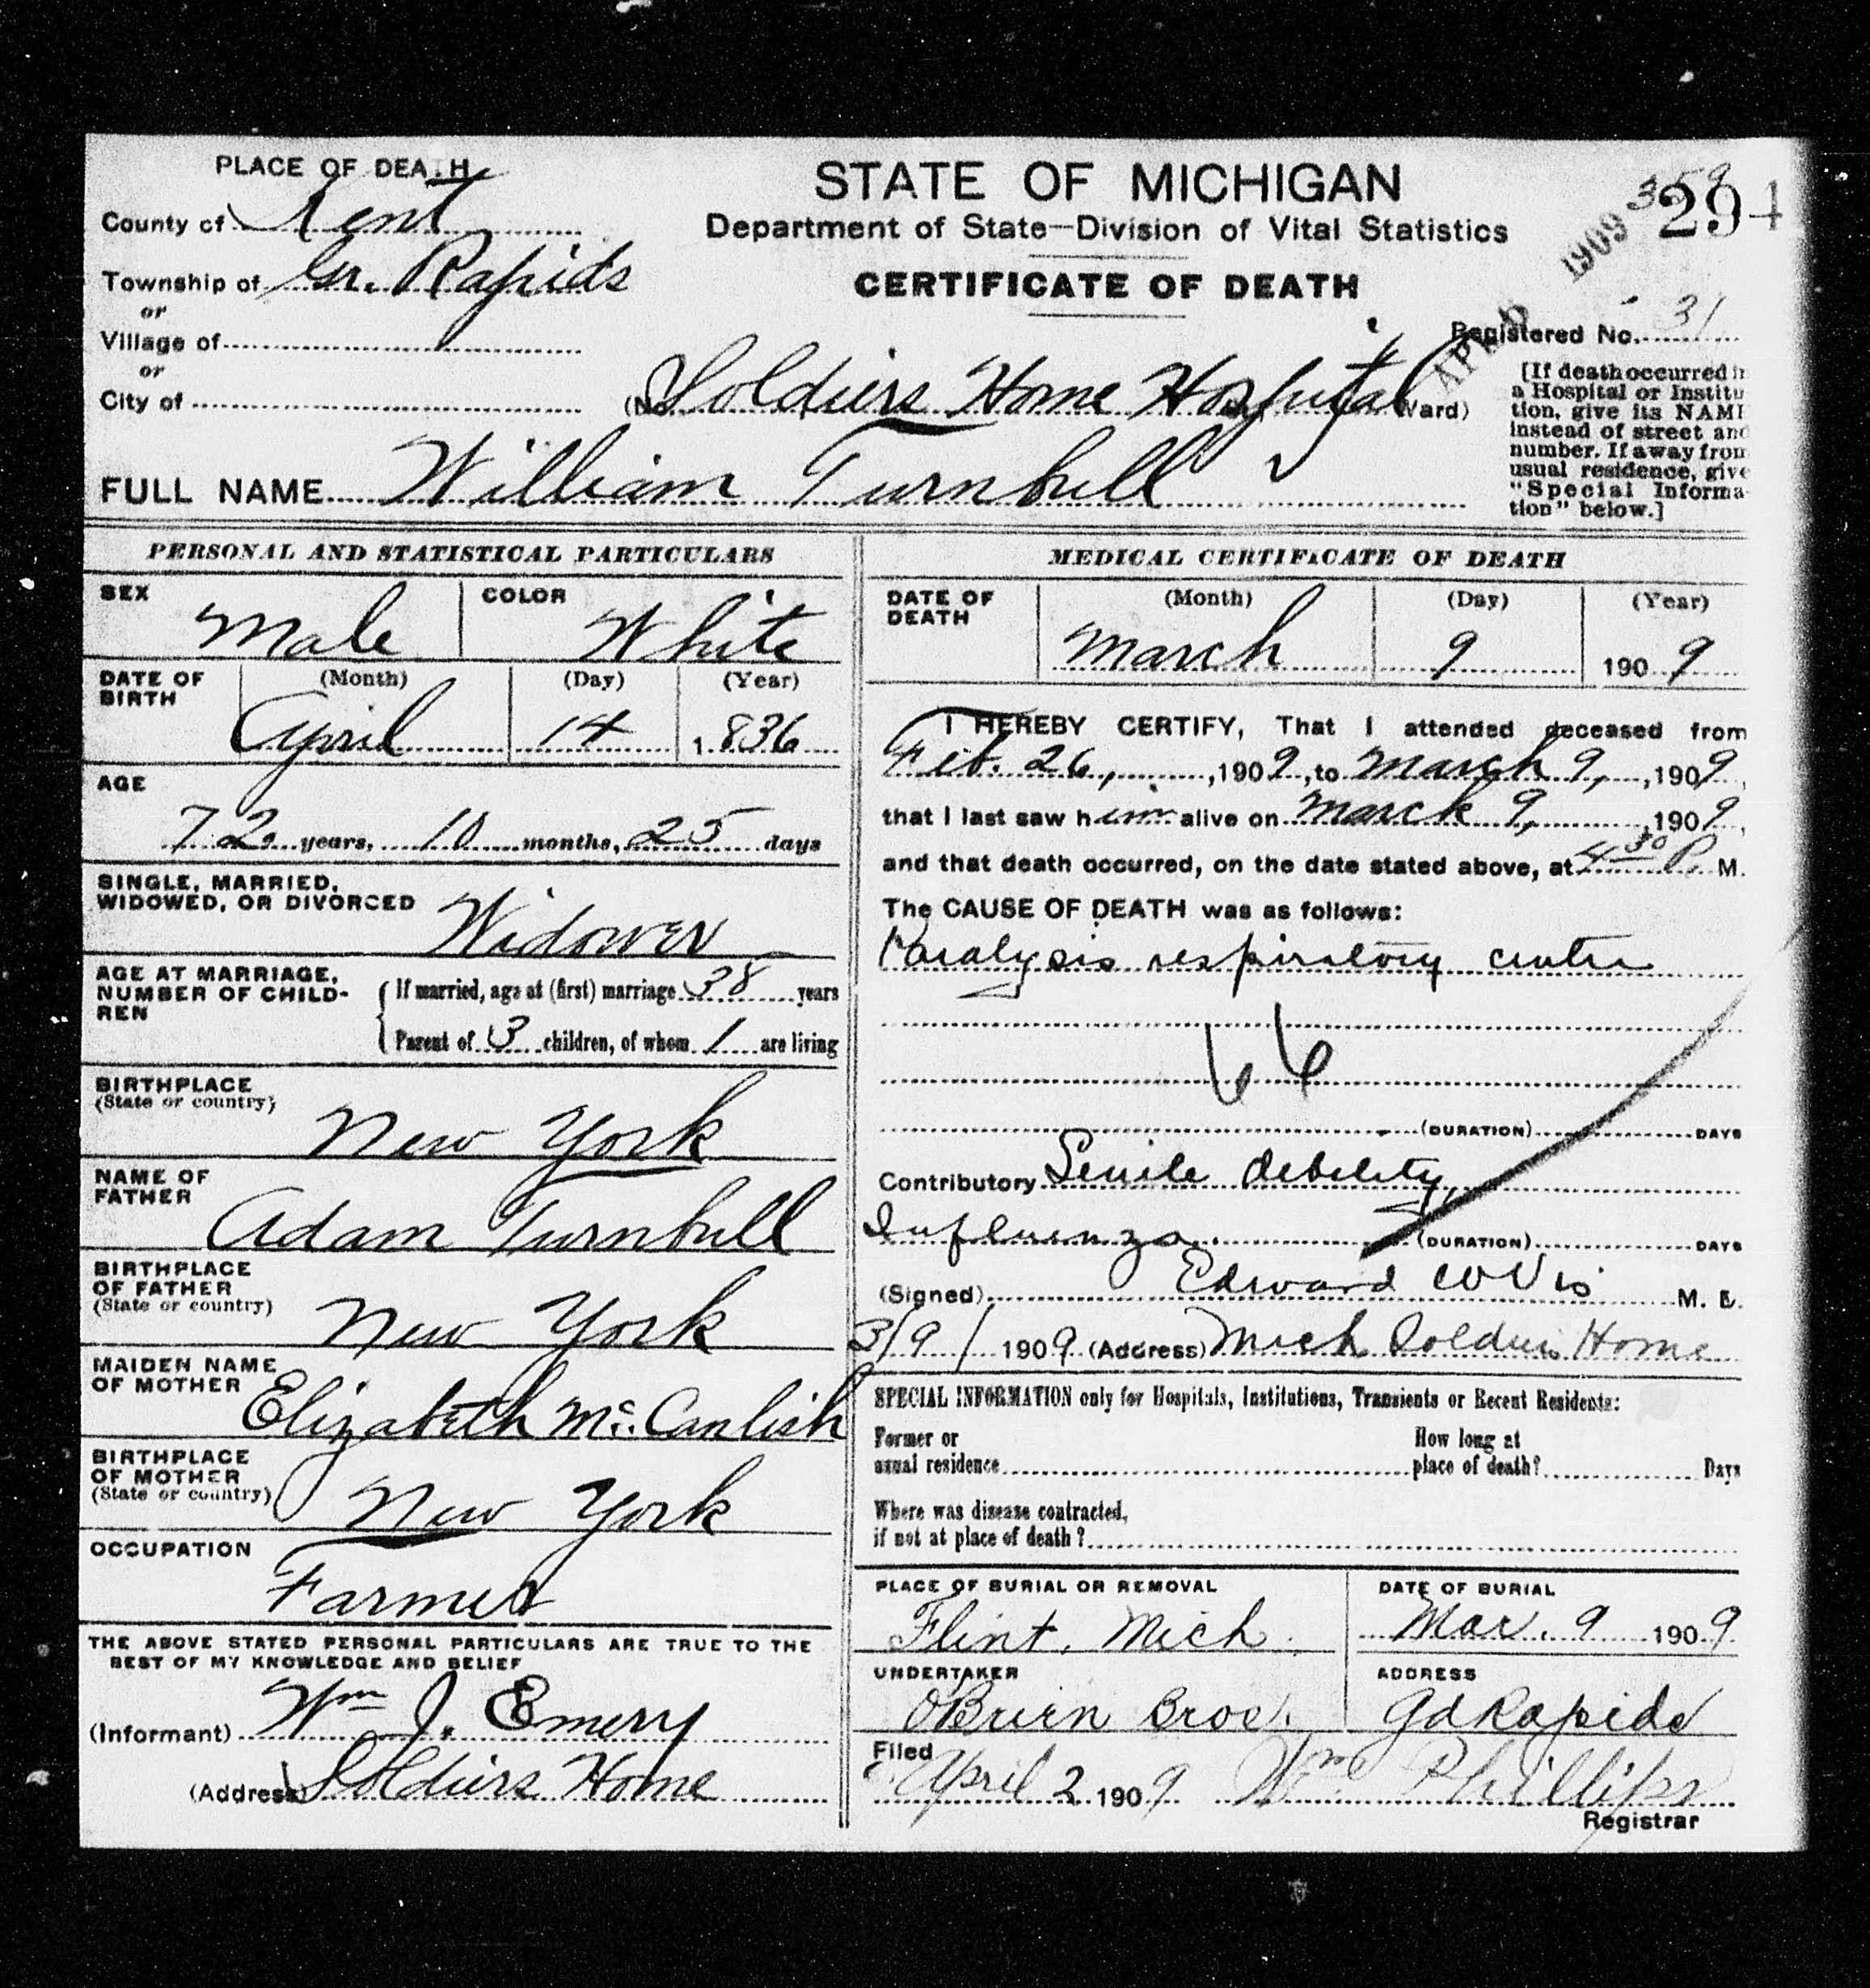 PLACE OF DEATH
County of Kent
Township of Gr. Rapids
or
Village of
or
City of
STATE OF MICHIGAN
Department of State—Division of Vital Statistics
CERTIFICATE OF DEATH
359
294
APR 6 1909
Registered No. 31
(No. Soldiers Home Hospital Ward)
[If death occurred in
a Hospital or Institu
tion, give its NAME
instead of street and
number. If away from
usual residence, give
"Special Informa-
tion" below.]
FULL NAME William Turnbull
PERSONAL AND STATISTICAL PARTICULARS
SEX Male
COLOR White
DATE OF BIRTH
(Month) (Day) (Year)
April 14 1836
AGE
72 years, 10 months, 25 days
SINGLE, MARRIED,
WIDOWED, OR DIVORCED Widower
AGE AT MARRIAGE,
NUMBER OF CHILD-
REN
If married, age at (first) marriage 38 years
Parent of 3 children, of whom 1 are living
BIRTHPLACE
(State or country) New York
NAME OF
FATHER Adam Turnbull
BIRTHPLACE
OF FATHER
(State or country) New York
MAIDEN NAME
OF MOTHER Elizabeth Mc. Canlish
BIRTHPLACE
OF MOTHER
(State or country) New York
OCCUPATION
Farmer
THE ABOVE STATED PERSONAL PARTICULARS ARE TRUE TO THE
BEST OF MY KNOWLEDGE AND BELIEF
(Informant) Wm J. Emery
(Address) Soldiers Home
MEDICAL CERTIFICATE OF DEATH
DATE OF
DEATH
(Month) (Day) (Year)
March 9 1909
I HEREBY CERTIFY, That I attended deceased from
Feb. 26, 1909, to March 9, 1909,
that I last saw him alive on March 9, 1909,
and that death occurred, on the date stated above, at 4 30 P. M.
The CAUSE OF DEATH was as follows:
Paralysis respiratory centre
66
(DURATION) DAYS
Contributory Senile debility,
Influenza. (DURATION) DAYS
(Signed) Edward M. D.
3/9/1909 (Address) Mich Soldiers Home
SPECIAL INFORMATION only for Hospitals, Institutions, Transients or Recent Residents:
Former or
usual residence
How long at
place of death? Days
Where was disease contracted,
if not at place of death?
PLACE OF BURIAL OR REMOVAL
Flint, Mich.
DATE OF BURIAL
Mar. 9 1909
UNDERTAKER
OBrien Bros.
ADDRESS
Gd Rapids
Filed
April 2 1909 Wm Phillips
Registrar